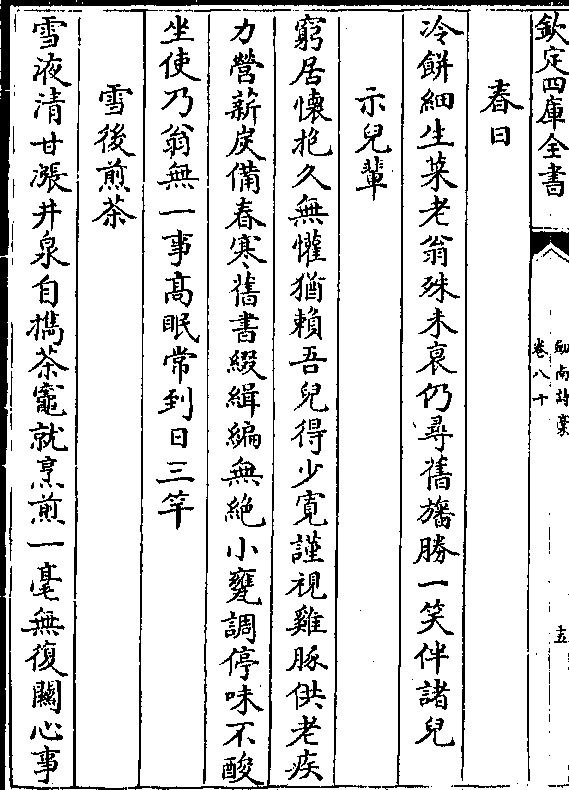 欽定四庫全書
劍南詩藁
卷八十
五
春日
冷餅細生菜老翁殊未衰仍尋舊旛勝一笑伴諸兒
示兒輩
窮居懷抱久無懽猶賴吾兒得少寛謹視雞豚供老疾
力營薪炭備春寒舊書綴緝編無絶小甕調停味不酸
坐使乃翁無一事髙眠常到日三竿
雪後煎茶
雪液清甘漲井泉自擕茶竈就烹煎一毫無復關心事